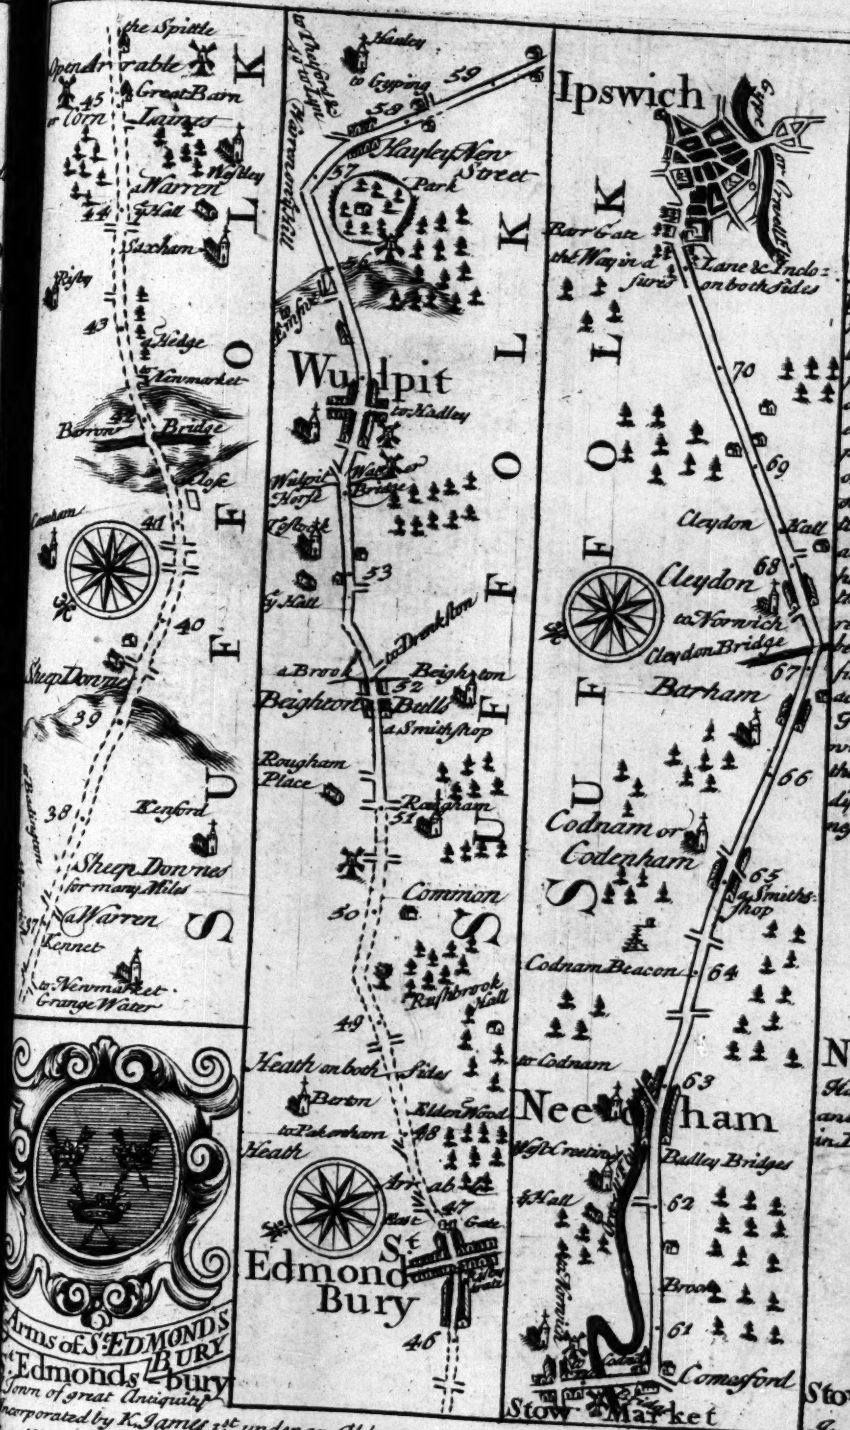 the Spittle
Open Arrable
Great Barn
45
or Corn Laines
Westley
a Warren
44
ye Hall
Saxham
Risby
43
a Hedge
to Newmarket
42
Barron Bridge
Close
41
40
Sheep Downes
39
38
Kenford
Sheep Downes
for many Miles
37
a Warren
Kennet
to Newmarket
Grange Water
SUFFOLK
Arms of St. EDMONDS
BURY
St. Edmonds bury
Town of great Antiquity
Incorporated by K. James 1st under an
Hauley
to Gyping
59
58
Hayley New
Street
57
Park
56
Wulpit
to Hadley
Wulpit
Horse
Water or
Bridge
Tostock
53
ye Hall
to Drenkston
a Brook
Beighton
52
Beighton Bulls
a Smith shop
Rougham
Place
Rougham
51
Common
50
Rushbrook
Hall
49
Heath on both Sides
Berton
Elden Wood
to Pakenham
48
Heath
Arrable
47
East Gate
St
Edmond
Bury
Risby
Gate
46
SUFFOLK
Ipswich
Gype or Orwell
Barr Gate
the Way in a
Lane & Inclo=
sures
on both sides
70
69
Cleydon Hall
68
Cleydon
to Norwich
Cleydon Bridge
67
Barham
66
Codnam or
Codenham
65
a Smiths
shop
Codnam Beacon
64
to Codnam
63
Needham
West Creeting
Badley Bridges
ye Hall
62
Brook
61
to Norwich
Comesford
Stow Market
SUFFOLK